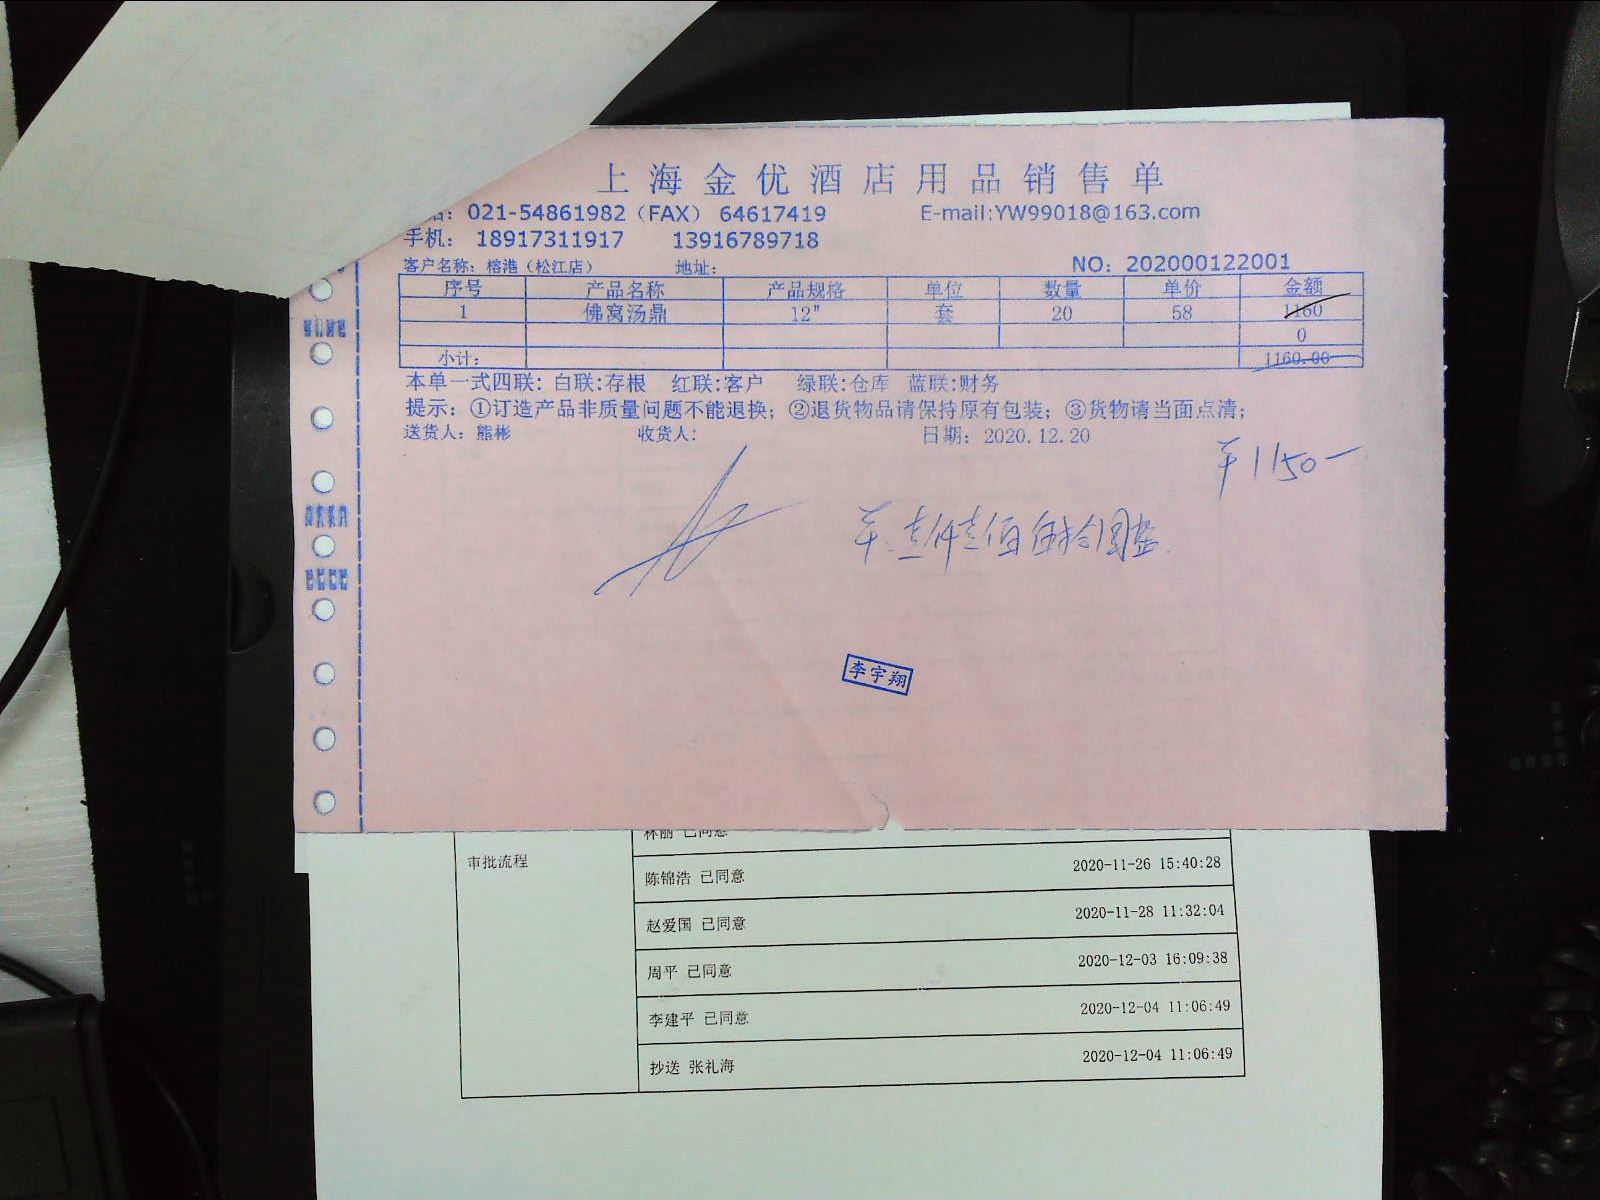 上海金优酒店用品销售单
：021-54861982（FAX） 64617419 E-mail:YW99018@163.com
手机： 18917311917 13916789718
客户名称：榕港（松江店） 地址： NO：202000122001
序号 产品名称 产品规格 单位 数量 单价 金额
1 佛窝汤鼎 12" 套 20 58 1160
0
小计： 1160.00
本单一式四联：白联:存根 红联:客户 绿联:仓库 蓝联:财务
提示：①订造产品非质量问题不能退换；②退货物品请保持原有包装；③货物请当面点清；
送货人：熊彬 收货人： 日期：2020.12.20
¥1150-
¥：壹仟壹佰伍拾圆整
李宇翔
林丽 已同意
审批流程
陈锦浩 已同意 2020-11-26 15:40:28
赵爱国 已同意 2020-11-28 11:32:04
周平 已同意 2020-12-03 16:09:38
李建平 已同意 2020-12-04 11:06:49
抄送 张礼海 2020-12-04 11:06:49